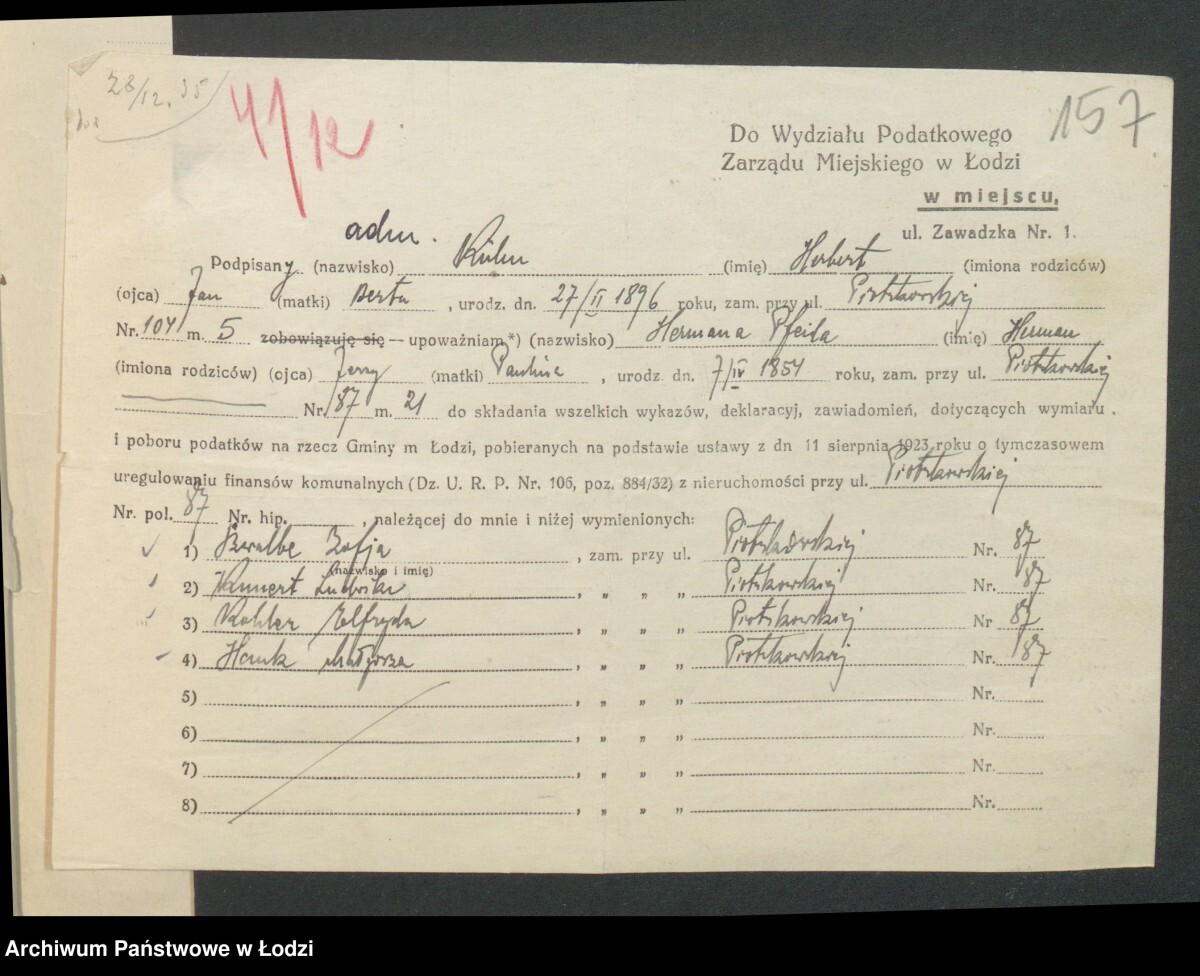 28/12. 35
41/12
157
Do Wydziału Podatkowego
Zarządu Miejskiego w Łodzi
w miejscu,
ul. Zawadzka Nr. 1.
adm.
Podpisany (nazwisko) Kühn (imię) Herbert (imiona rodziców)
(ojca) Jan (matki) Berta, urodz. dn. 27/II 1896 roku, zam. przy ul. Piotrkowskiej
Nr. 104 m. 5 zobowiązuję się — upoważniam *) (nazwisko) Hermana Pfeila (imię) Herman
(imiona rodziców) (ojca) Jerzy (matki) Paulina, urodz. dn. 7/IV 1854 roku, zam. przy ul. Piotrkowskiej
Nr. 87 m. 21 do składania wszelkich wykazów, deklaracyj, zawiadomień, dotyczących wymiaru
i poboru podatków na rzecz Gminy m Łodzi, pobieranych na podstawie ustawy z dn 11 sierpnia 1923 roku o tymczasowem
uregulowaniu finansów komunalnych (Dz. U. R. P. Nr. 106, poz. 884/32) z nieruchomości przy ul. Piotrkowskiej
Nr. pol. 87 Nr. hip. , należącej do mnie i niżej wymienionych:
1) Szwalbe Zofja, zam. przy ul. Piotrkowskiej Nr. 87
(nazwisko i imię)
2) Kannert, „ „ „ Piotrkowskiej Nr. 87
3) Kohler Elfryda, „ „ „ Piotrkowskiej Nr 87
4) Hauk, „ „ „ Piotrkowskiej Nr. 87
5) , „ „ „ Nr.
6) , „ „ „ Nr.
7) , „ „ „ Nr.
8) , „ „ „ Nr.
Archiwum Państwowe w Łodzi